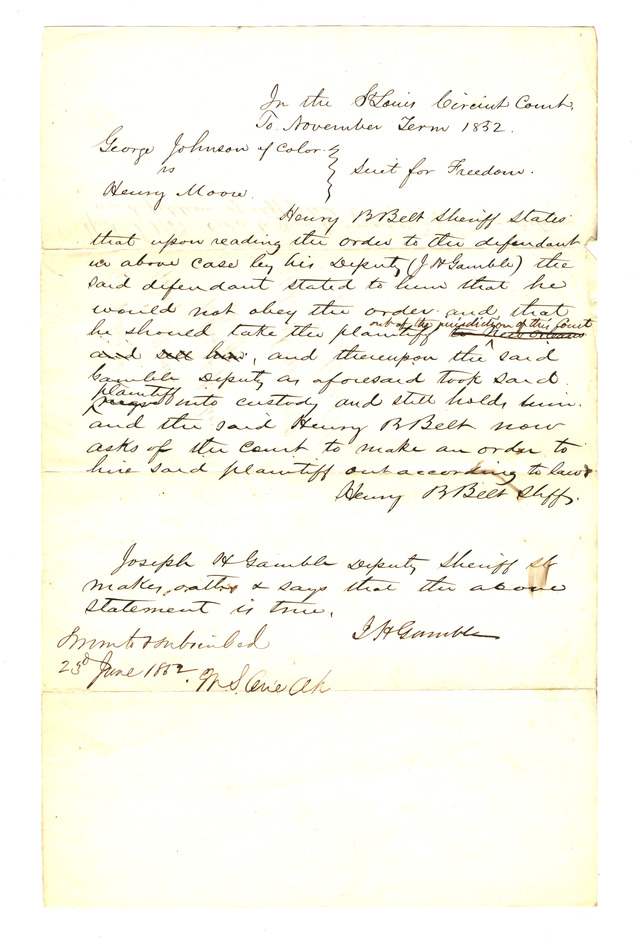 In the St Louis Circuit Court,
To November Term 1852.
George Johnson of Color.
vs
Henry Moore.
Suit for Freedom.
Henry B Belt Sheriff states
that upon reading the order to the defendant
in above case by his Deputy (J H Gamble) the
said defendant stated to him that he
would not obey the order and that
out of the jurisdiction of this Court
he should take the plaintiff to New Orleans
and sell him, and thereupon the said
Gamble Deputy as aforesaid took said
plaintiff
into custody and still holds him.
and the said Henry B Belt now
asks of the Court to make an order to
hire said plaintiff out according to law
Henry B Belt Shff.
Joseph H Gamble Deputy Sheriff
makes oath & says that the above
statement is true.
J H Gamble
Sworn to & subscribed
23d June 1852.